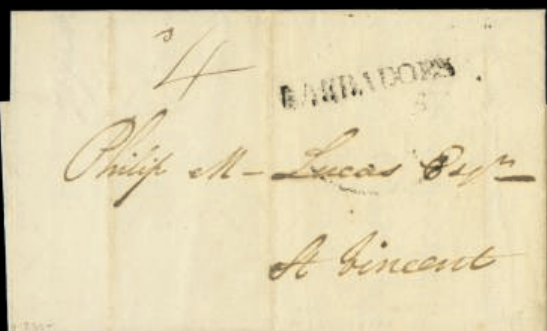 4
BARBADOES
Philip M- Lucas Esqr
St Vincent